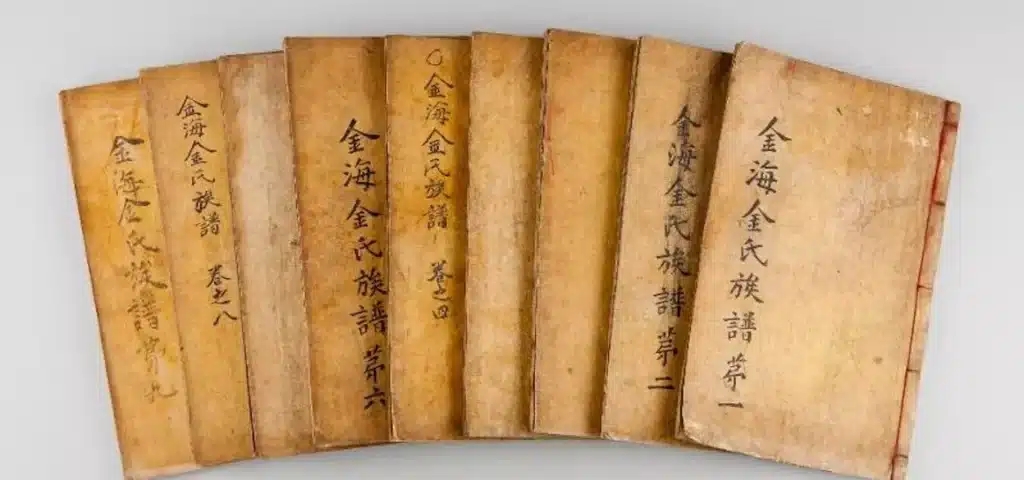 金海金氏族譜 苐一
金海金氏族譜 苐二
○金海金氏族譜 卷之四
金海金氏族譜 苐六
金海金氏族譜 卷之八
金海金氏族譜 苐九